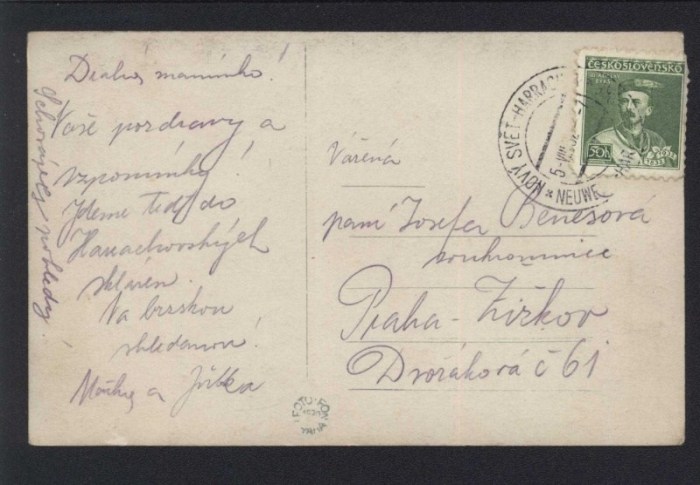 Drahá maminko!
Vaše pozdravy a
vzpomínka!
Jdeme teď do
Harrachovských
skláren.
Na brzskou
shledanou!
a Jirka
Schovávejte pohledy!
ČESKOSLOVENSKO
50h
NOVÝ SVĚT-HARRACH
5-VIII
* NEUWE
Vážená
paní Josefa Benešová
soukromnice
Praha-Žižkov
Dvořákova č 61